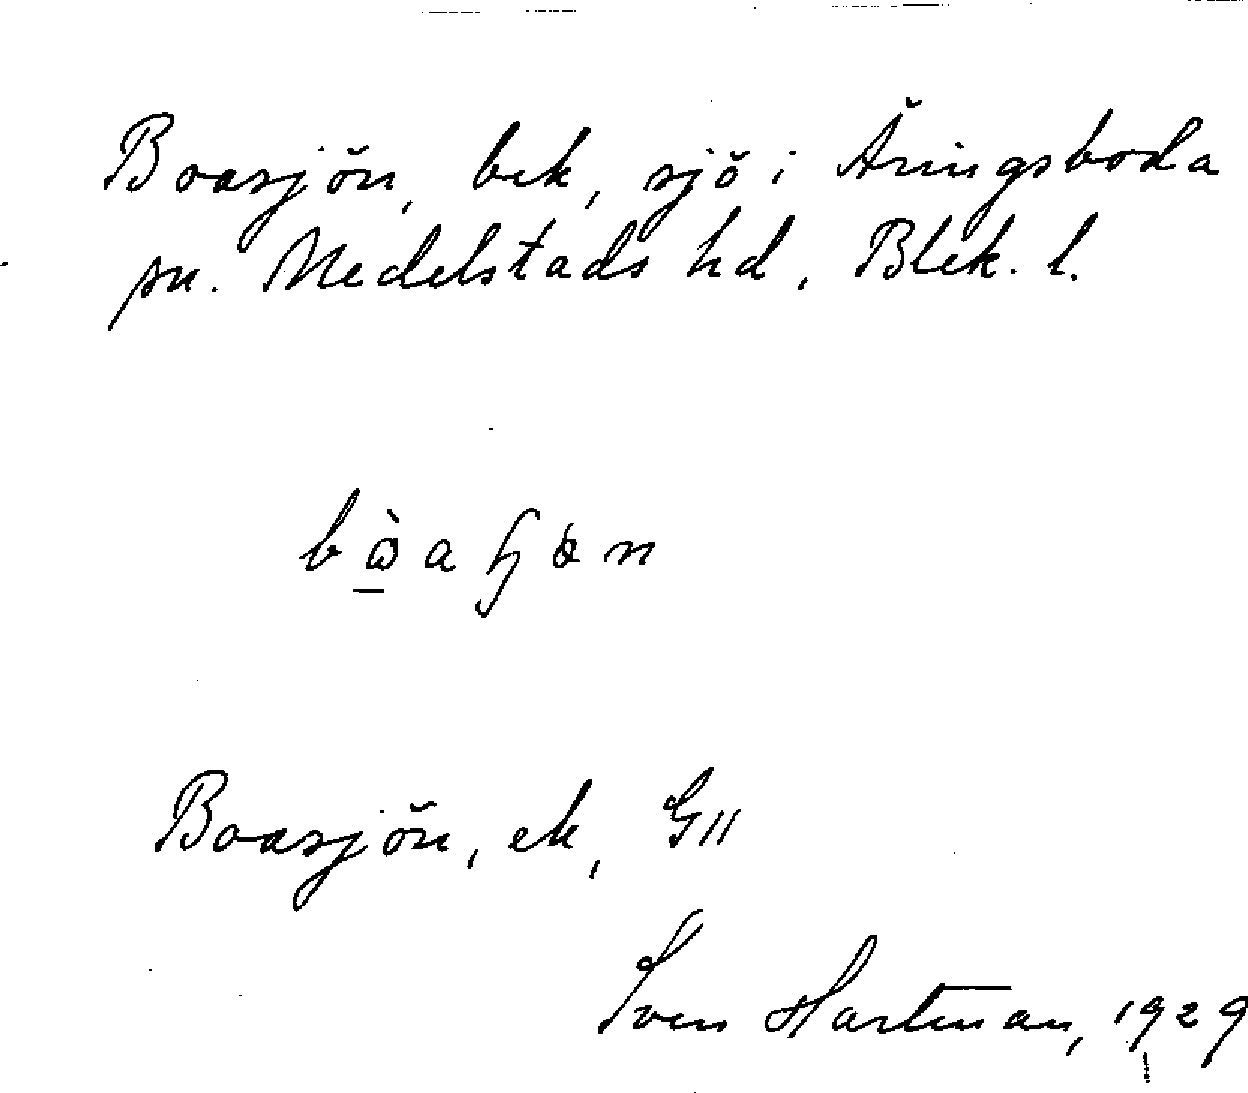 Boasjön, bek, sjö i Åringsboda
sn. Medelstads hd, Blek. l.
Boasjön, ek, G11
Sven Hartman, 1929